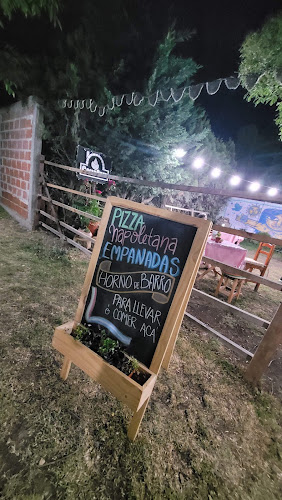 PIZZA
napoletana
EMPANADAS
HORNO DE BARRO
PARA LLEVAR
ó COMER ACÁ